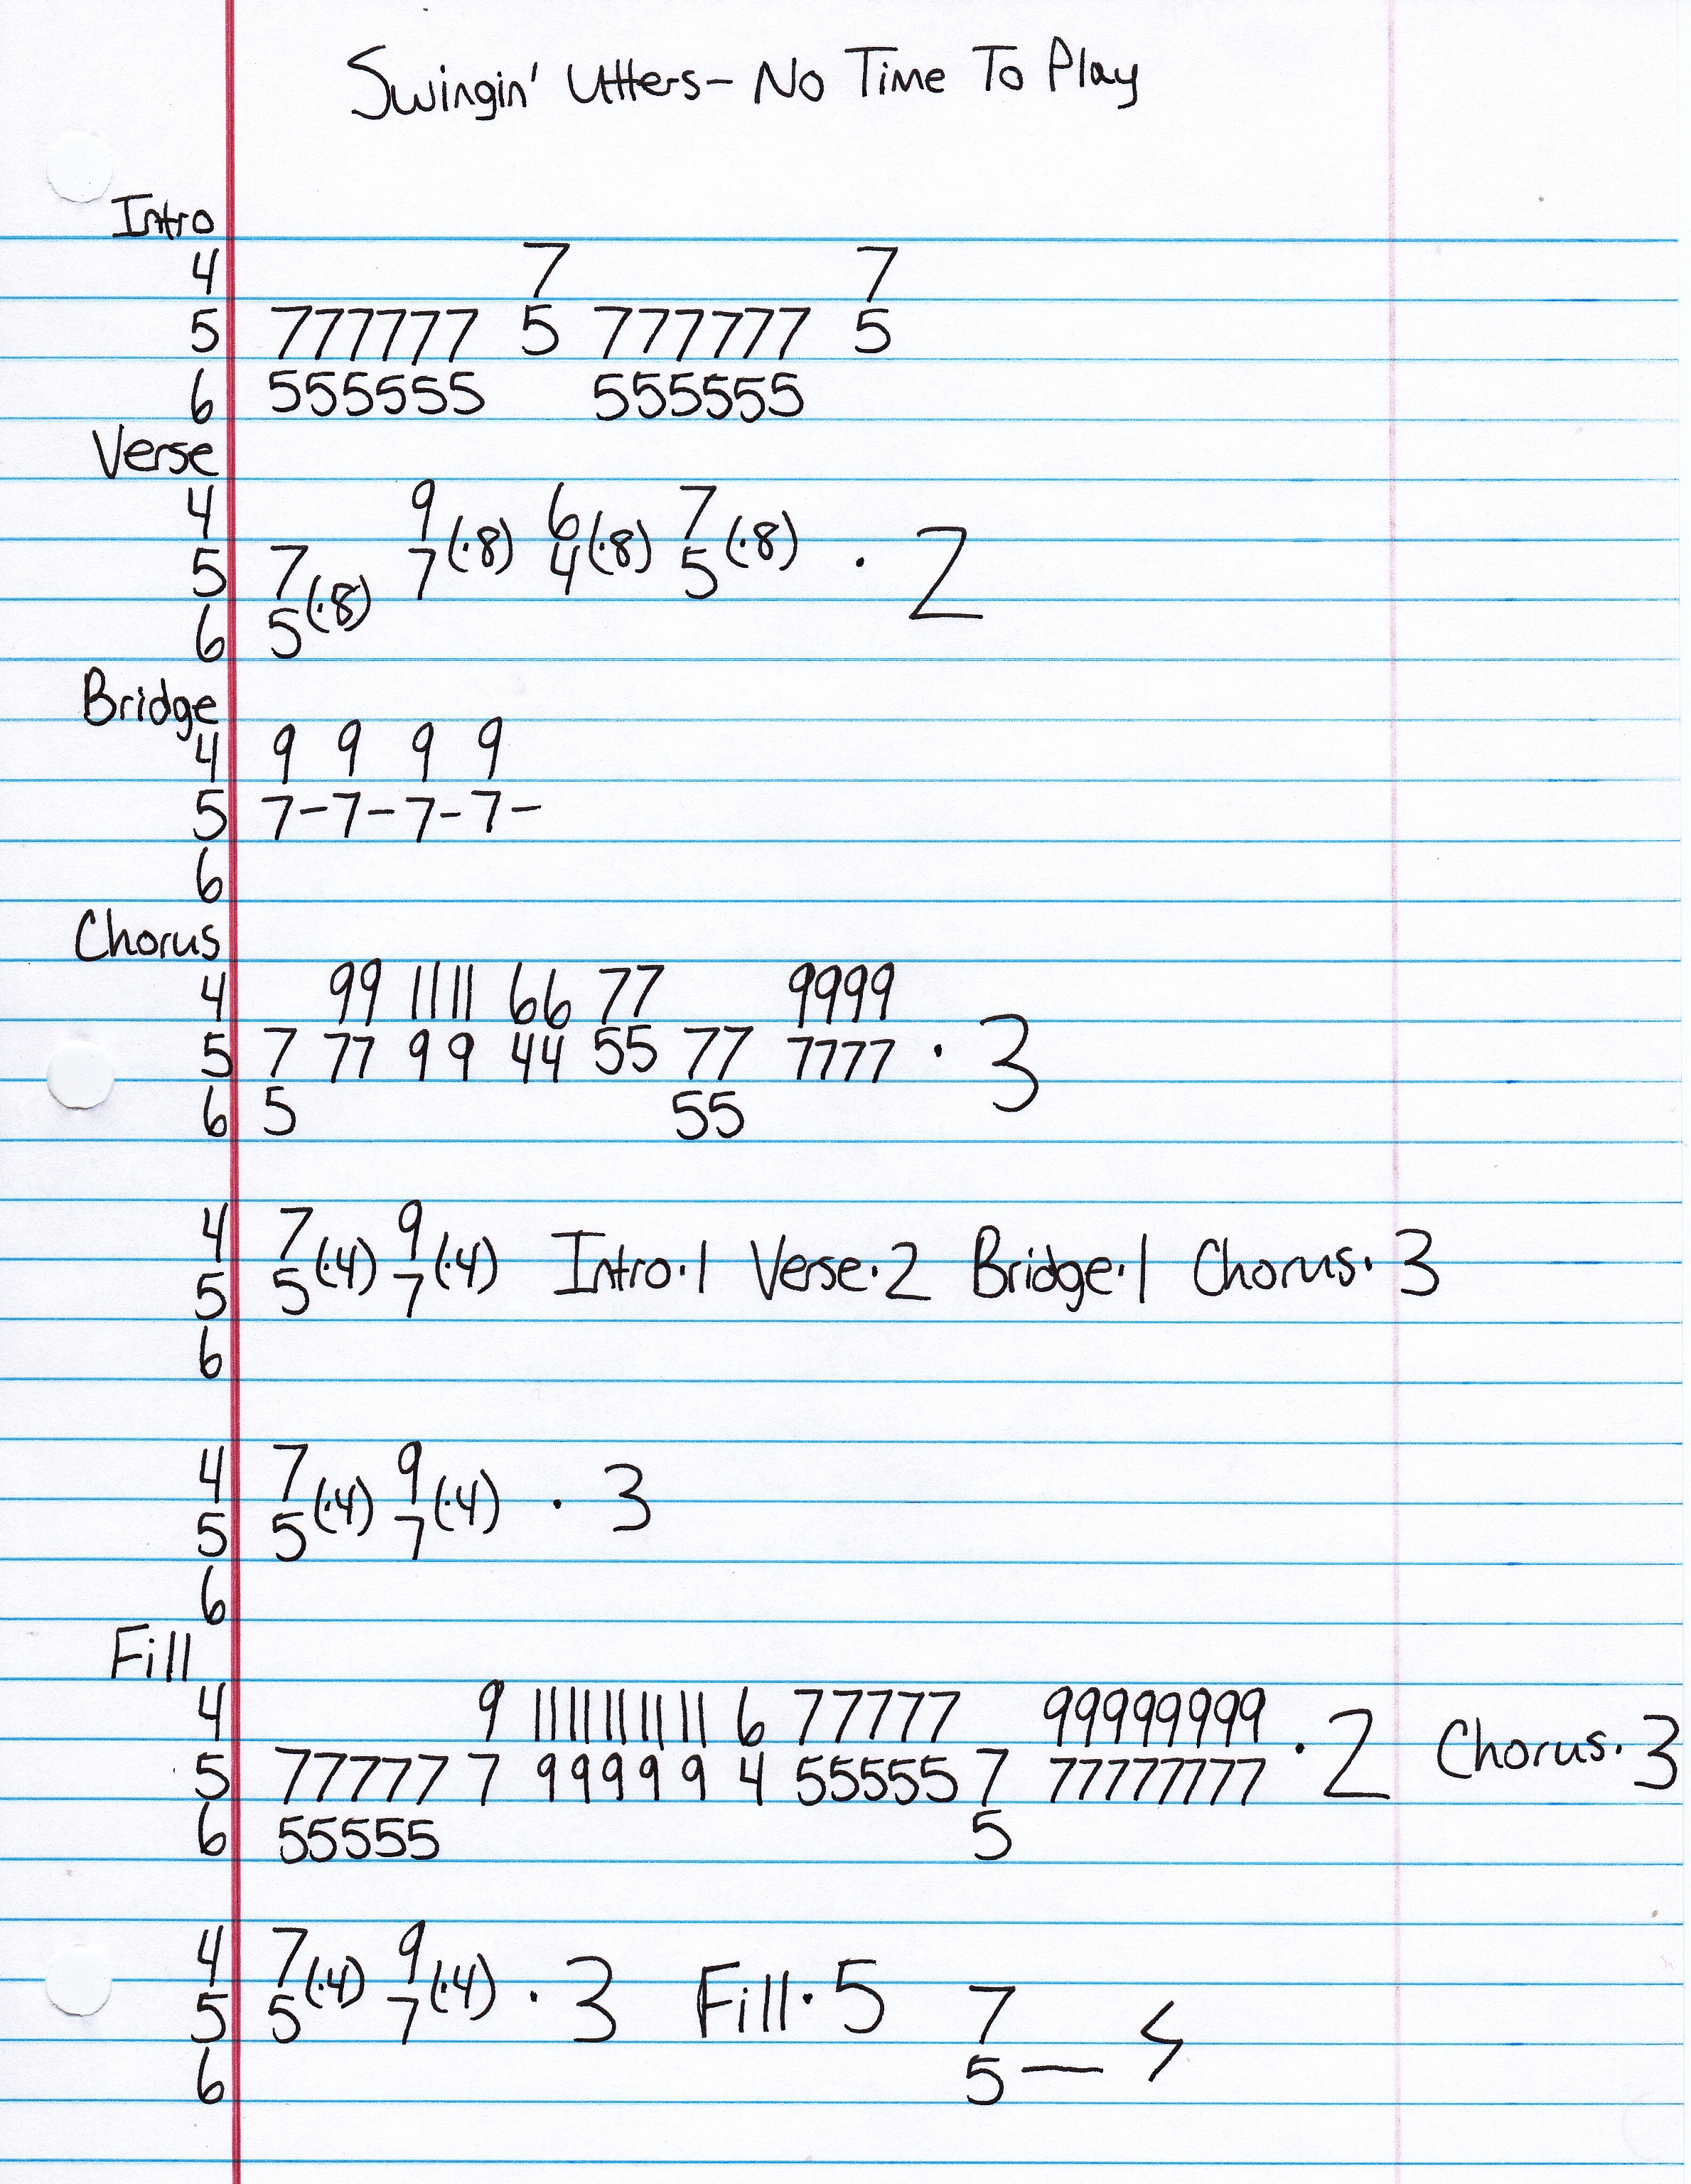 Swingin' Utters - No Time To Play
Intro
4 7 7
5 777777 5 777777 5
6 555555 555555
Verse
4 9 (·8) 6 (·8) 7 (·8) · 2
5 7 (·8) 7 4 5
6 5
Bridge
4 9 9 9 9
5 7-7-7-7-
6
Chorus
4 99 11 11 66 77 9999
5 7 77 9 9 44 55 77 7777 · 3
6 5 55
4 7 (·4) 9 (·4) Intro·1 Verse·2 Bridge·1 Chorus·3
5 5 7
6
4 7 (·4) 9 (·4) · 3
5 5 7
6
Fill
4 9 1111111111 6 77777 99999999 · 2 Chorus·3
5 77777 7 99999 4 55555 7 77777777
6 55555 5
4 7 (·4) 9 (·4) · 3 Fill·5
5 5 7 7
6 5 —